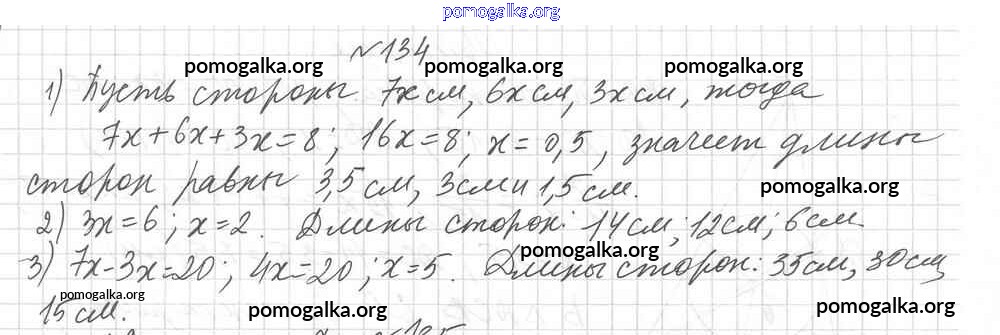 pomogalka.org
№134
pomogalka.org pomogalka.org pomogalka.org
1) Пусть стороны 7x см, 6x см, 3x см, тогда
7x+6x+3x=8; 16x=8; x=0,5, значит длины
сторон равны 3,5 см, 3см и 1,5 см.
pomogalka.org
2) 3x=6; x=2. Длины сторон: 14см; 12см; 6см
pomogalka.org
3) 7x-3x=20; 4x=20; x=5. Длины сторон: 35см, 30см
pomogalka.org
15см.
pomogalka.org pomogalka.org pomogalka.org